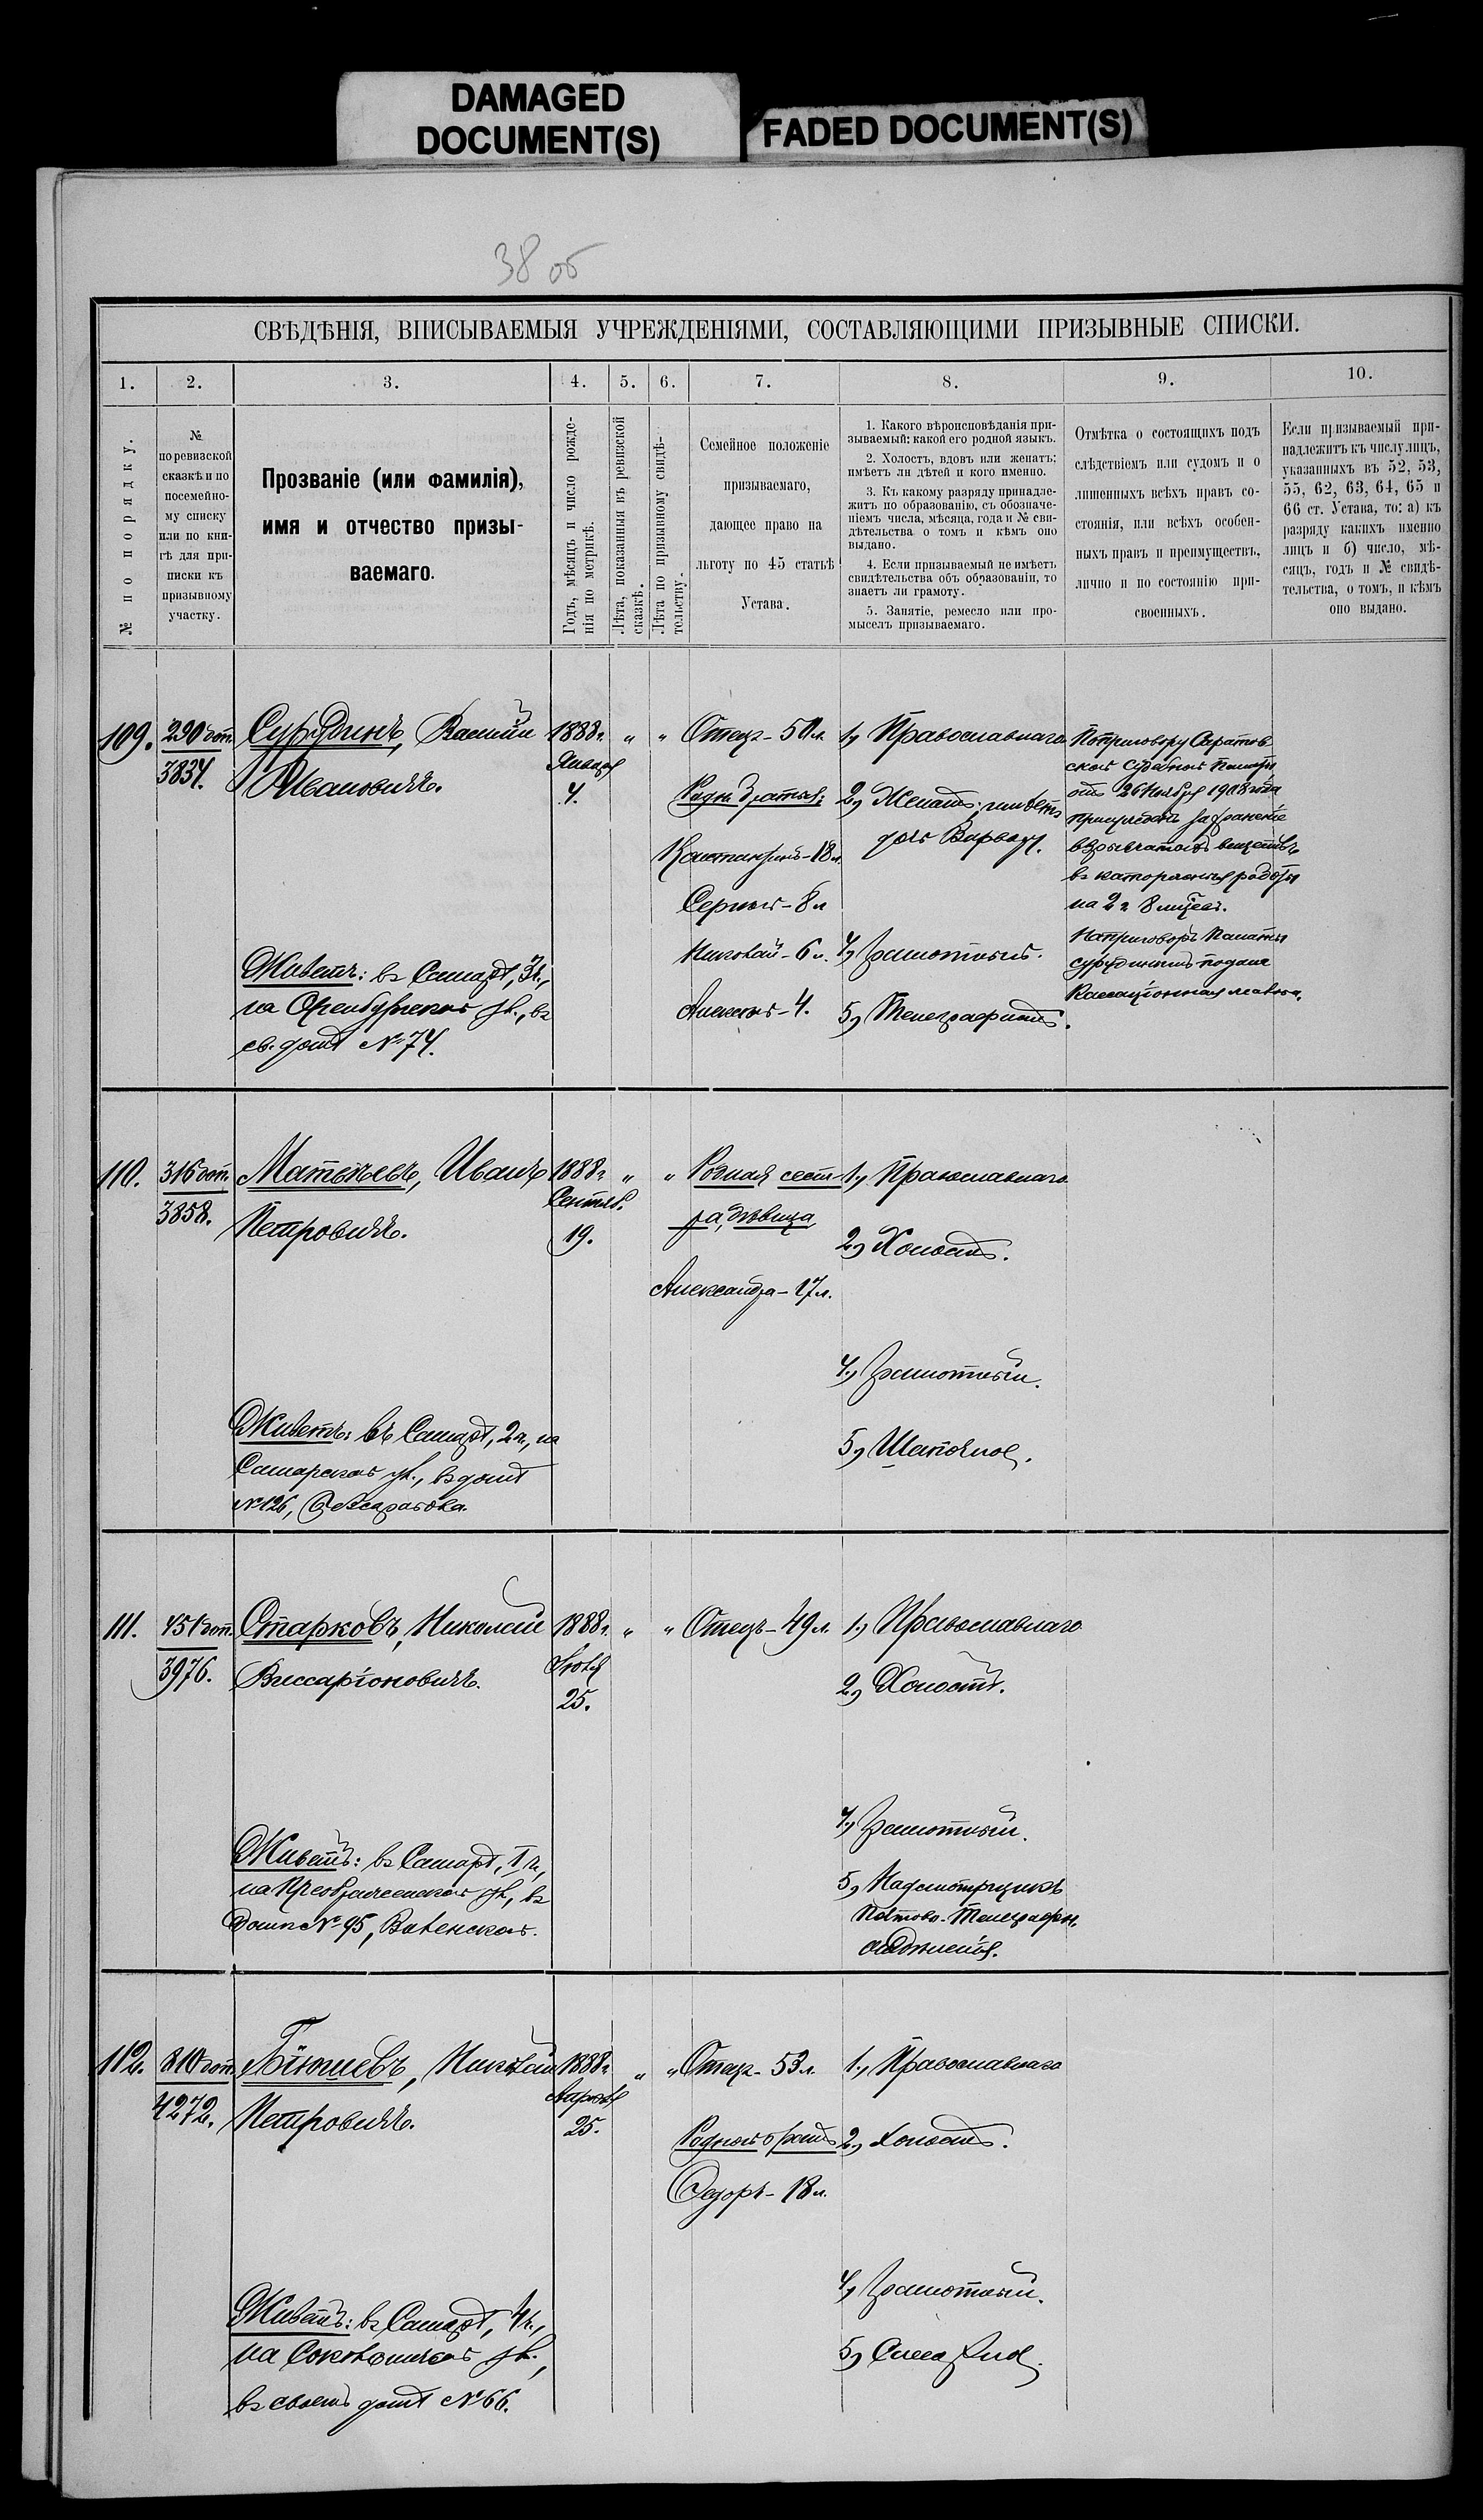 DAMAGED
DOCUMENT(S)
FADED DOCUMENT(S)
38 об
СВѢДѢНІЯ, ВПИСЫВАЕМЫЯ УЧРЕЖДЕНІЯМИ, СОСТАВЛЯЮЩИМИ ПРИЗЫВНЫЕ СПИСКИ.
1.
2.
3.
4.
5.
6.
7.
8.
9.
10.
№ по порядку.
№
по ревизской
сказкѣ и по
посемейно-
му списку
или по кни-
гѣ для при-
писки къ
призывному
участку.
Прозваніе (или фамилія),
имя и отчество призы-
ваемаго.
Годъ, мѣсяцъ и число рожде-
нія по метрикѣ.
Лѣта, показанныя въ ревизской
сказкѣ.
Лѣта по призывному свидѣ-
тельству.
Семейное положеніе
призываемаго,
дающее право на
льготу по 45 статьѣ
Устава.
1. Какого вѣроисповѣданія при-
зываемый: какой его родной языкъ.
2. Холостъ, вдовъ или женатъ;
имѣетъ ли дѣтей и кого именно.
3. Къ какому разряду принадле-
житъ по образованію, съ обозначе-
ніемъ числа, мѣсяца, года и № сви-
дѣтельства о томъ и кѣмъ оно
выдано.
4. Если призываемый не имѣетъ
свидѣтельства объ образованіи, то
знаетъ ли грамоту.
5. Занятіе, ремесло или про-
мыселъ призываемаго.
Отмѣтка о состоящихъ подъ
слѣдствіемъ или судомъ и о
лишенныхъ всѣхъ правъ со-
стоянія, или всѣхъ особен-
ныхъ правъ и преимуществъ,
лично и по состоянію при-
своенныхъ.
Если призываемый при-
надлежитъ къ числу лицъ,
указанныхъ въ 52, 53,
55, 62, 63, 64, 65 и
66 ст. Устава, то: а) къ
разряду какихъ именно
лицъ и б) число, мѣ-
сяцъ, годъ и № свидѣ-
тельства, о томъ, и кѣмъ
оно выдано.
109.
290 доп.
3834.
Сурудинъ, Василій
Ивановичъ.
Живетъ: въ Самарѣ, 3ч.,
на Оренбургской ул., въ
св. домѣ №74.
1888г.
Января
4.
"
"
Отецъ - 50л.
Родн. братья:
Константинъ - 18л.
Сергѣй - 8л
Николай - 6л.
Алексѣй - 4.
1, Православнаго
2, Женатъ; имѣетъ
дочь Варвару.
4, Грамотный.
5, Телеграфистъ.
По приговору Саратов
ской Судебной Палаты
отъ 26 Ноября 1908 года
присужденъ за храненіе
взрывчатыхъ веществъ
въ каторжныя работы
на 2г 8 мѣсяц.
На приговоръ Палаты
Сурудинымъ подана
Кассаціонная жалоба.
110.
316 доп.
3858.
Матвѣевъ, Иванъ
Петровичъ.
Живетъ: въ Самарѣ, 2ч., на
Самарской ул., въ домѣ
№126,
1888г
Сентяб.
19.
"
"
Родная сест
ра, дѣвица
Александра - 17л.
1, Православнаго
2, Холостъ.
4, Грамотный.
5,
111.
451 доп.
3976.
Старковъ, Николай
Виссаріоновичъ.
Живетъ: въ Самарѣ, 1ч,
на Преображенской ул., въ
домѣ №95,
1888г.
Іюля
25.
"
"
Отецъ - 49л.
1, Православнаго
2, Холостъ.
4, Грамотный.
5, Надсмотрщикъ
Почтово-Телеграфн.
112.
810 доп.
4272.
Николай
Петровичъ.
Живетъ: въ Самарѣ, 4ч.,
на Сокольничьей ул.,
въ своемъ домѣ №66.
1888г
Апрѣля
25.
"
"
Отецъ - 53л.
Родной братъ
Федоръ - 18л.
1, Православнаго
2, Холостъ.
4, Грамотный.
5, Слесарное.